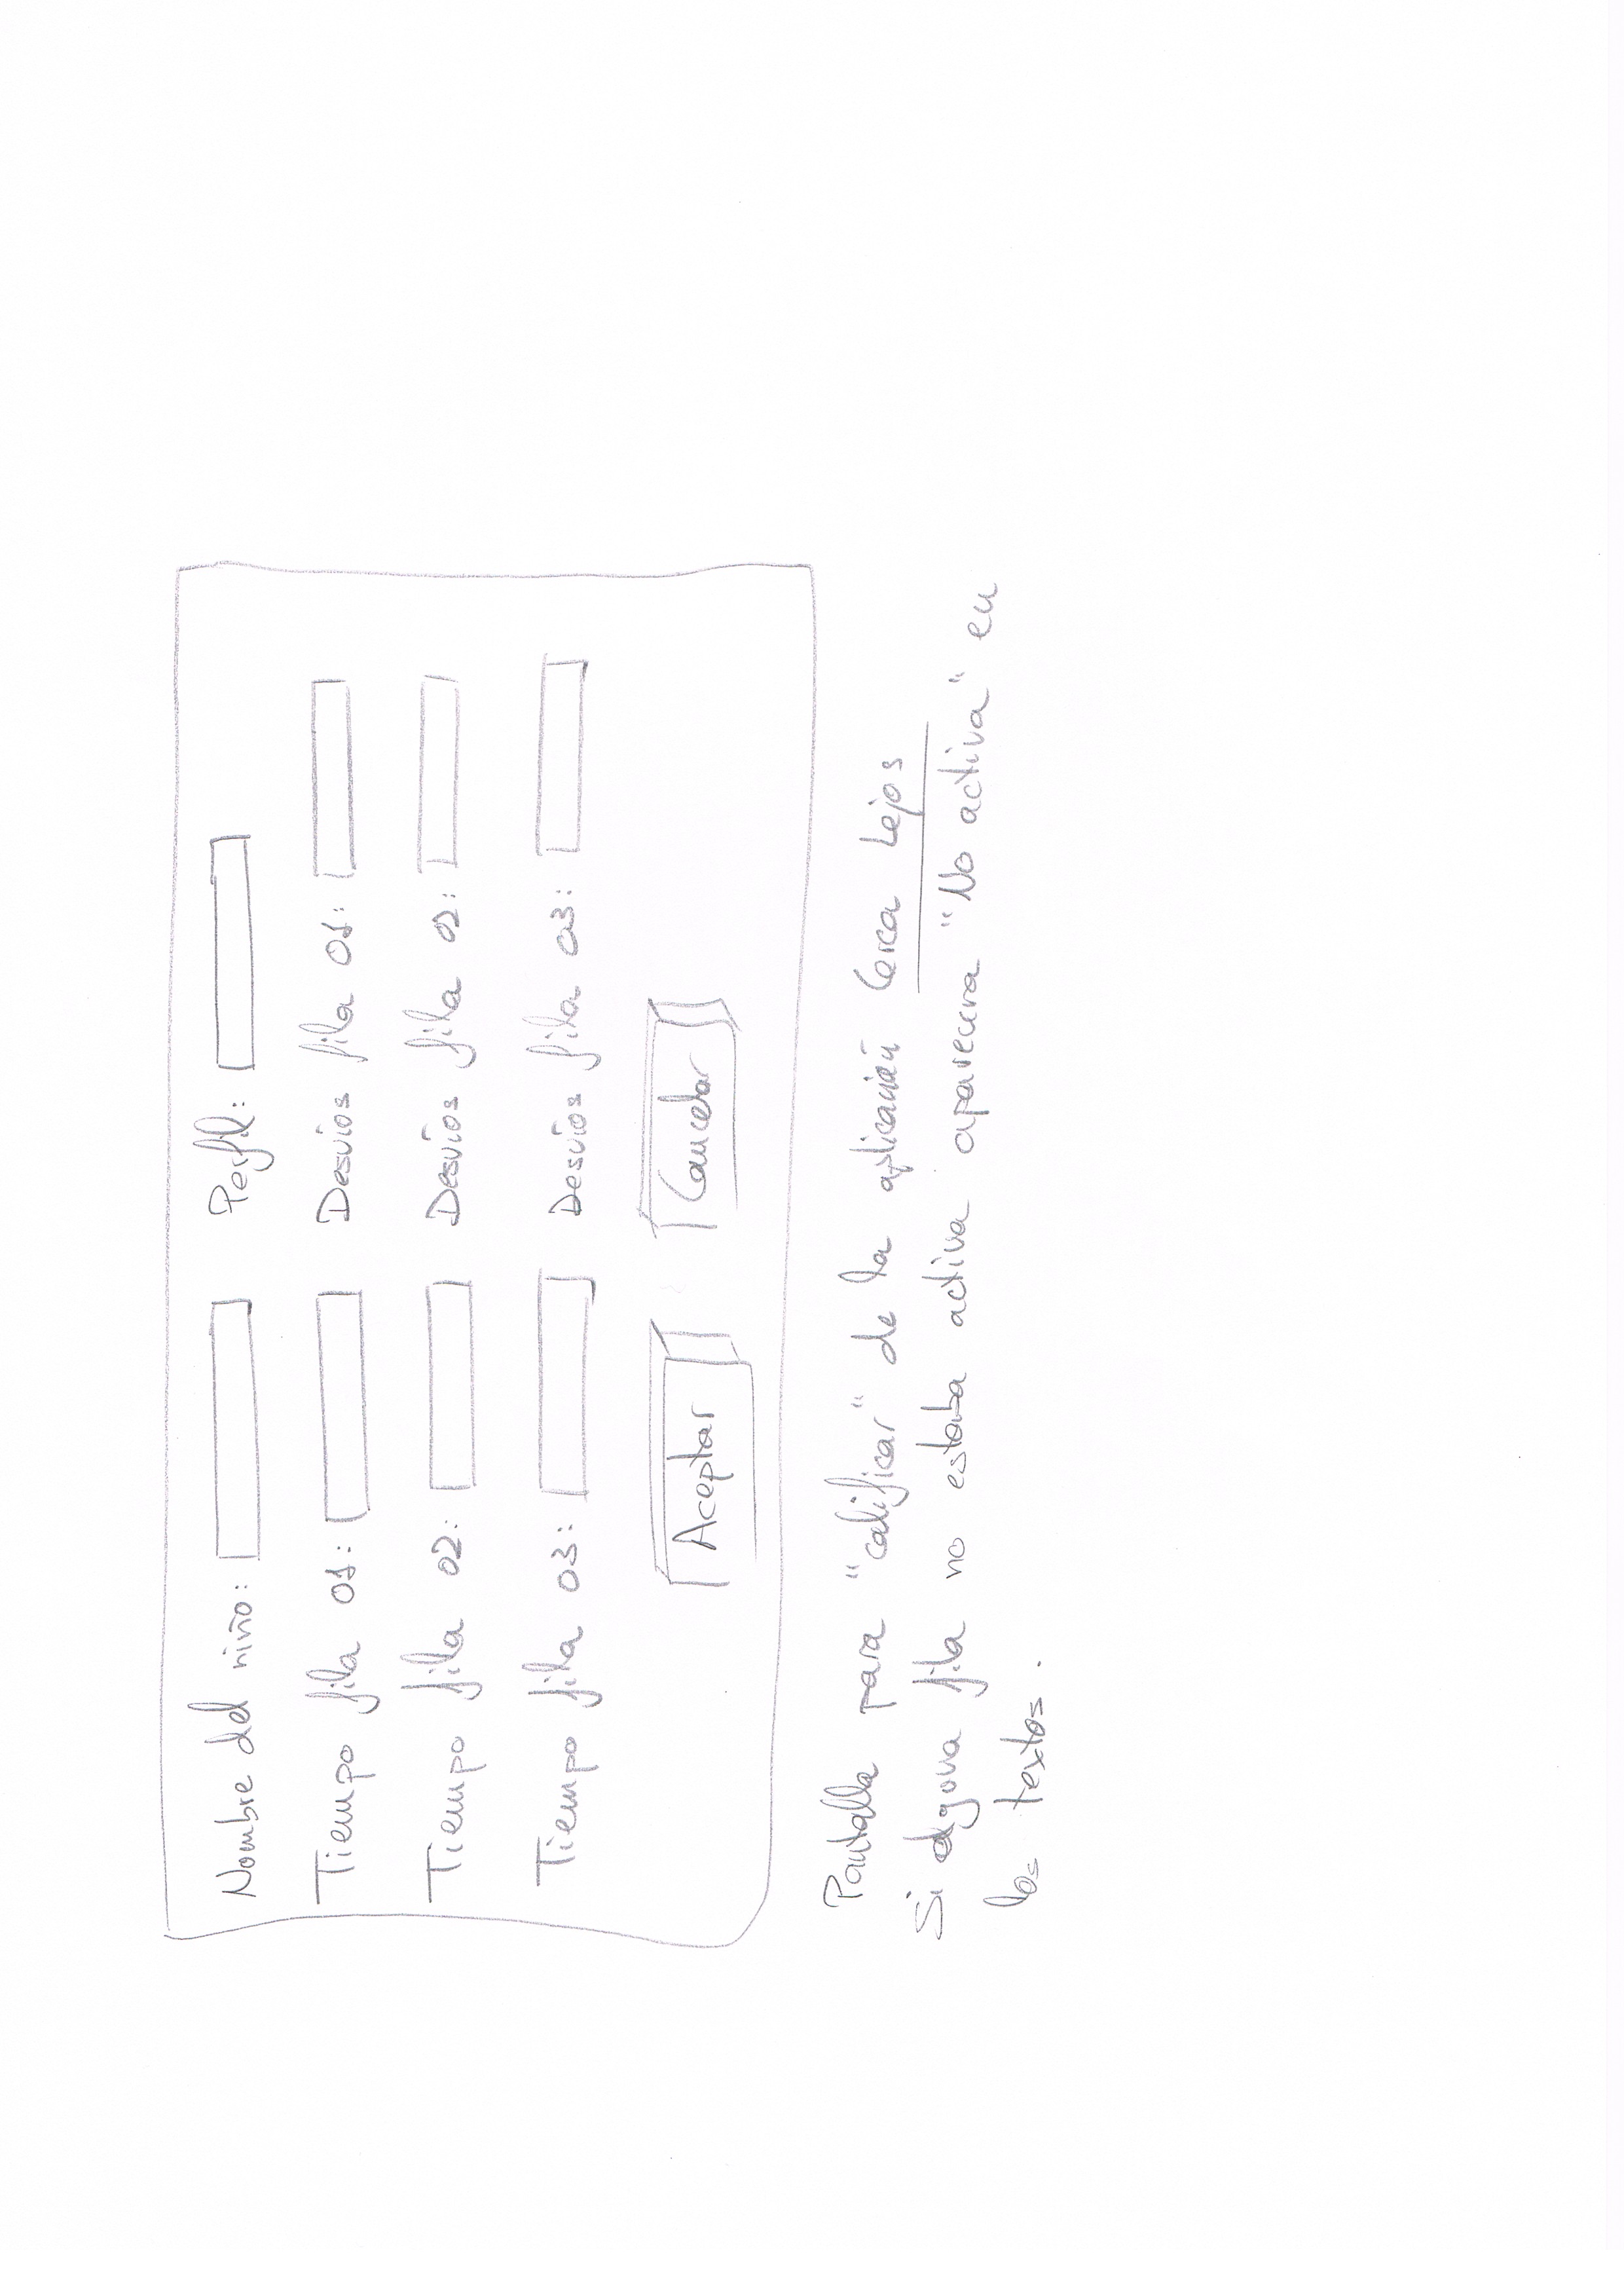 Nombre del niño: Perfil:
Tiempo fila 01: Desvíos fila 01:
Tiempo fila 02: Desvíos fila 02:
Tiempo fila 03: Desvíos fila 03:
Aceptar Cancelar
Pantalla para "calificar" de la aplicación Cerca Lejos
Si alguna fila no estaba activa aparecera "No activa" en
los textos.